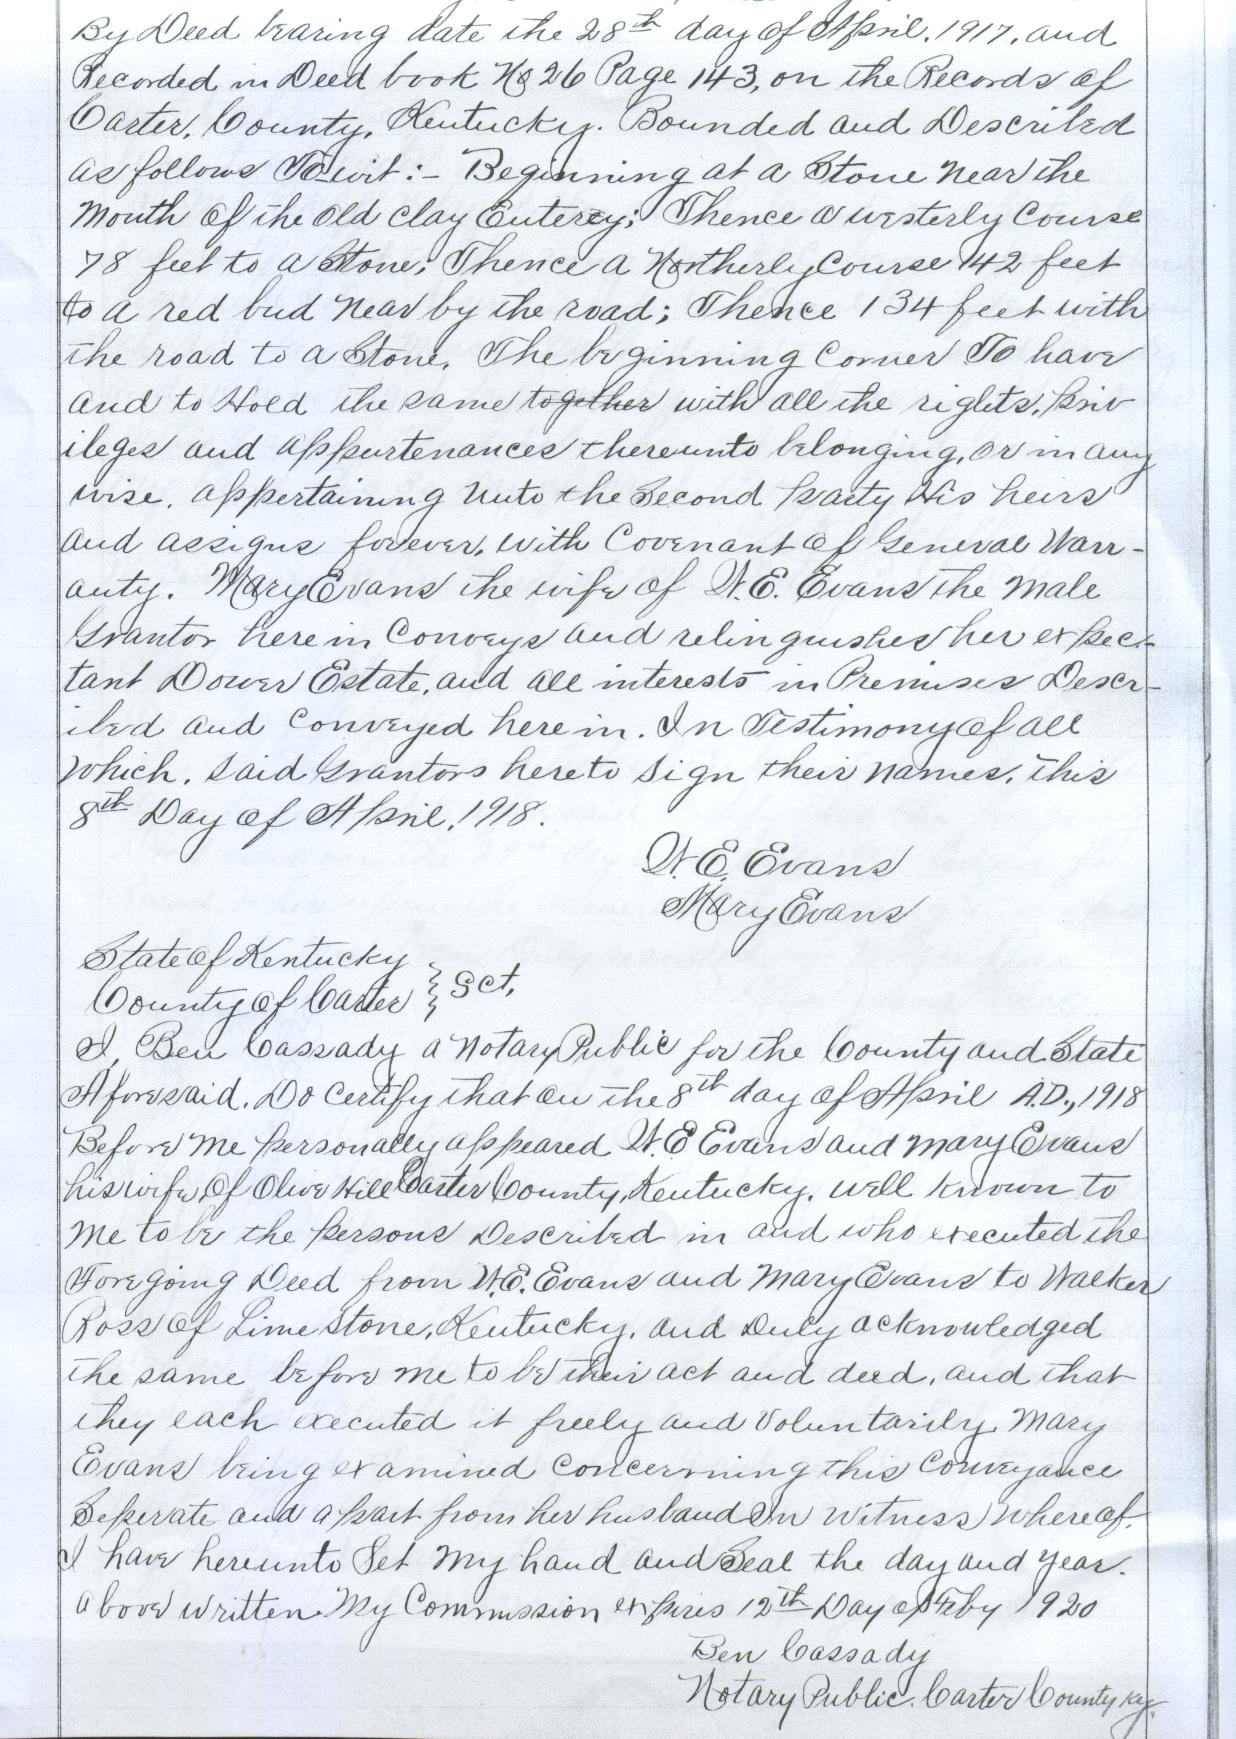 By Deed bearing date the 28th day of April, 1917, and
Recorded in Deed book No 26 Page 143, on the Records of
Carter, County, Kentucky. Bounded and Described
as follows To-wit:- Beginning at a Stone Near the
Mouth of the old clay Enterey; Thence a westerly Course
78 feet to a Stone; Thence a Northerly Course 42 feet
to a red bud Near by the road; Thence 134 feet with
the road to a Stone. The beginning Corner To have
and to Hold the same together with all the rights, priv
ileges and appurtenances thereunto belonging, or in any
wise, appertaining Unto the Second party His heirs
and assigns forever, with Covenant of General Warr-
anty. Mary Evans the wife of W.E. Evans the Male
Grantor here in Conveys and relinquishes her expec-
tant Dower Estate, and all interests in Premises Descr-
ibed and Conveyed here in. In Testimony of all
which, said Grantors hereto sign their names, this
8th Day of April, 1918.
W.E. Evans
Mary Evans
State of Kentucky
County of Carter } Sct,
I, Ben Cassady a Notary Public for the County and State
Aforesaid, Do Certify that on the 8th day of April A.D., 1918
Before Me personally appeared W.E Evans and Mary Evans
his wife of Olive Hill Carter County, Kentucky, well known to
Me to be the persons Described in and who executed the
Foregoing Deed from W.E. Evans and Mary Evans to Walker
Ross of Lime stone, Kentucky, and Duly acknowledged
the same before me to be their act and deed, and that
they each executed it freely and Voluntarily, Mary
Evans being examined Concerning this Conveyance
Seperate and apart from her husband In Witness Whereof,
I have hereunto Set My hand and Seal the day and year.
above written. My Commission expires 12th Day of Feby 1920
Ben Cassady
Notary Public. Carter County Ky.